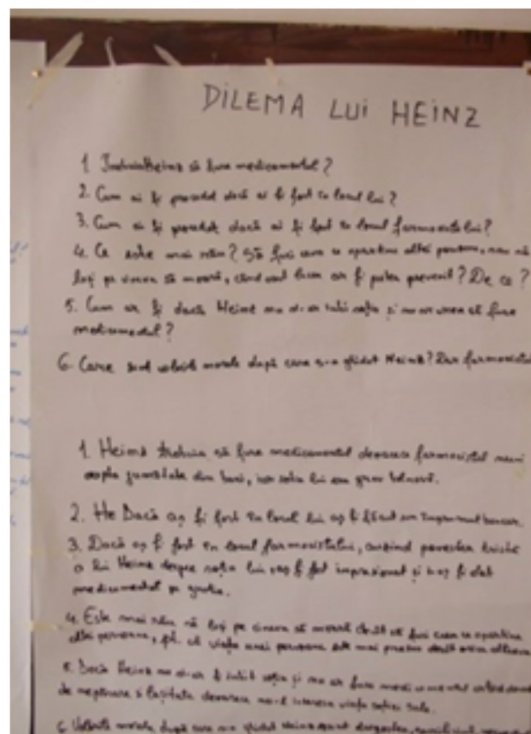 DILEMA LUI HEINZ
1. Trebuia Heinz să fure medicamentul?
2. Cum ai fi procedat dacă ai fi fost în locul lui?
3. Cum ai fi procedat dacă ai fi fost în locul farmacistului?
4. Ce este mai rău? Să furi ceva ce aparține altei persoane, sau să
lași pe cineva să moară, când acest lucru ar fi putut prevenit? De ce?
5. Cum ar fi dacă Heinz nu și-ar iubi soția și nu ar vrea să fure
medicamentul?
6. Care sunt valorile morale după care s-a ghidat Heinz? Dar farmacistul
1. Heinz trebuia să fure medicamentul deoarece farmacistul
jumătate din bani, iar soția lui era grav bolnavă.
2. He Dacă aș fi fost în locul lui aș fi făcut un împrumut bancar.
3. Dacă aș fi fost în locul farmacistului, auzind povestea tristă
a lui Heinz despre soția lui, aș fi fost impresionat și i-aș fi dat
medicamentul pe gratis.
4. Este mai rău să lași pe cineva să moară decât să furi ceva ce aparține
altei persoane, pt. că viața unei persoane este mai presus decât orice
5. Dacă Heinz nu și-ar fi iubit soția și nu ar fura medicamentul
de nepăsare și lașitate deoarece viața soției sale.
6. Valorile morale după care s-a ghidat Heinz sunt dragostea,